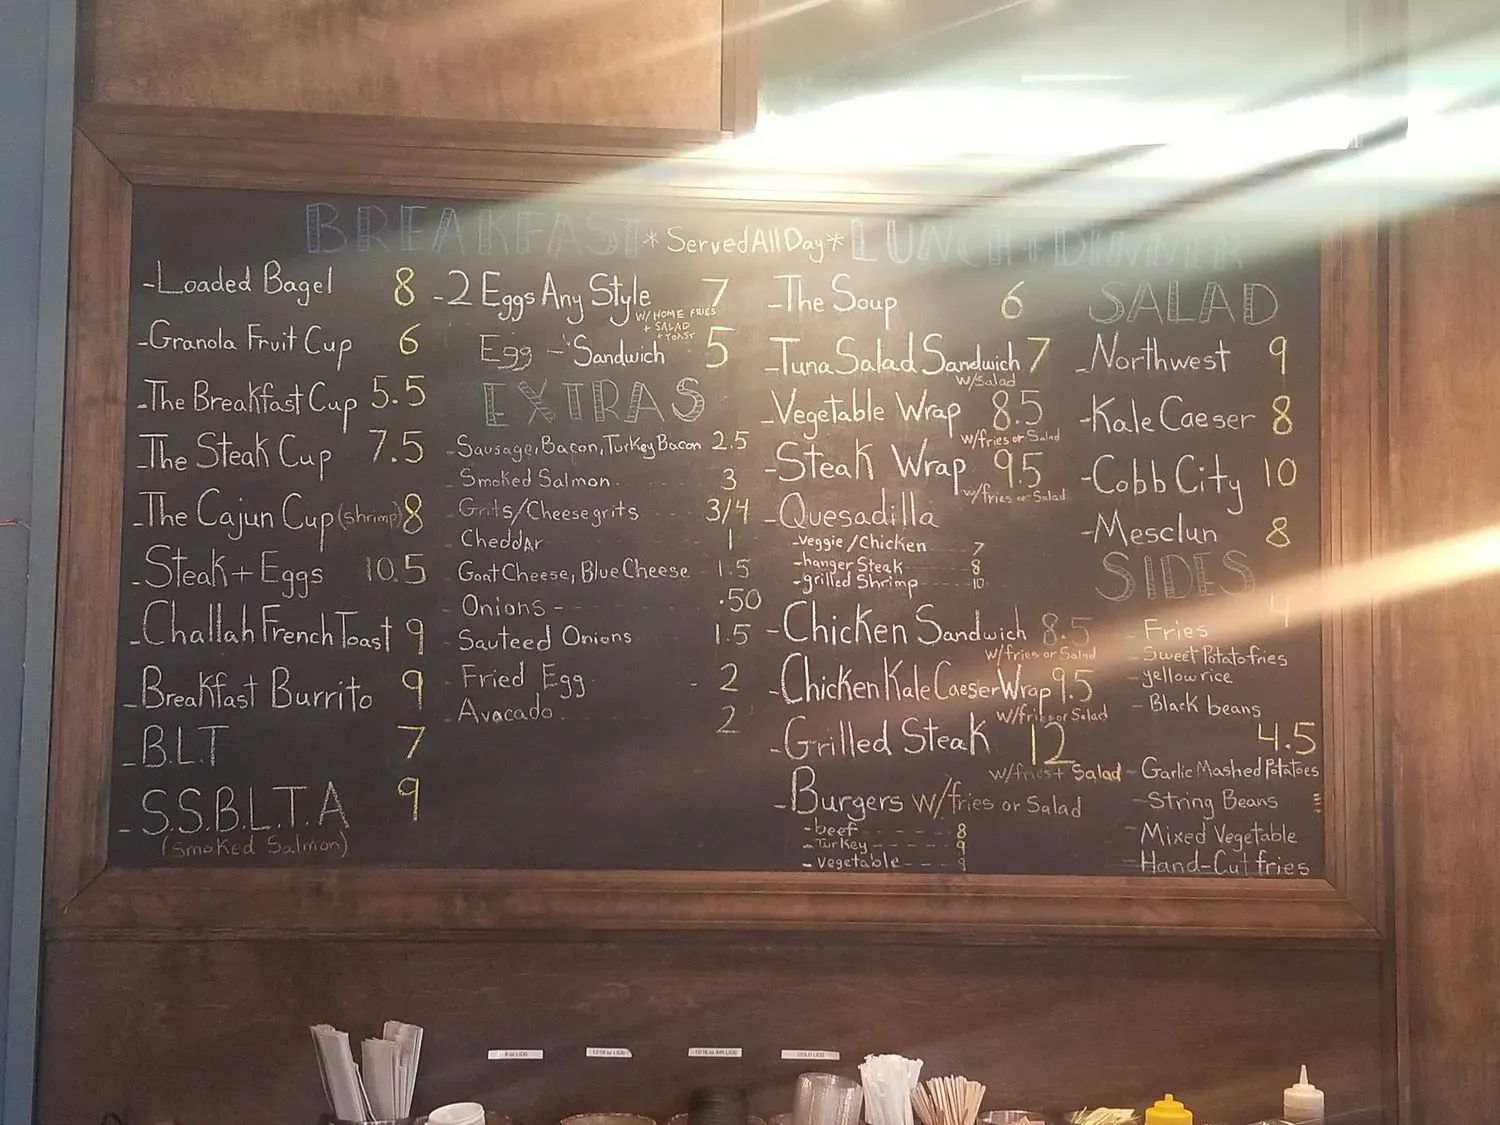 BREAKFAST *Served All Day* LUNCH + DINNER
-Loaded Bagel 8
-Granola Fruit Cup 6
-The Breakfast Cup 5.5
-The Steak Cup 7.5
-The Cajun Cup (shrimp) 8
-Steak + Eggs 10.5
-Challah French Toast 9
-Breakfast Burrito 9
-B.L.T 7
-S.S.B.L.T.A 9
(Smoked Salmon)
-2 Eggs Any Style 7
W/HOME FRIES
+ SALAD
+ TOAST
Egg - Sandwich 5
EXTRAS
-Sausage, Bacon, Turkey Bacon 2.5
-Smoked Salmon 3
-Grits/Cheese grits 3/4
-Cheddar 1
-Goat Cheese, Blue Cheese 1.5
-Onions - .50
-Sauteed Onions 1.5
-Fried Egg - 2
-Avacado 2
-The Soup 6
-Tuna Salad Sandwich 7
w/Salad
-Vegetable Wrap 8.5
w/fries or Salad
-Steak Wrap 9.5
w/fries or Salad
-Quesadilla
-veggie/Chicken 7
-hanger Steak 8
-grilled Shrimp 10
-Chicken Sandwich 8.5
w/fries or Salad
-Chicken Kale Caeser Wrap 9.5
w/fries or Salad
-Grilled Steak 12
w/fries + Salad
-Burgers w/fries or Salad
-beef 8
-Turkey 9
-vegetable 9
SALAD
-Northwest 9
-Kale Caeser 8
-Cobb City 10
-Mesclun 8
SIDES
4
-Fries
-Sweet Potato fries
-yellow rice
-Black beans
4.5
-Garlic Mashed Potatoes
-String Beans
-Mixed Vegetable
-Hand-Cut fries
8 oz LIDS
12/16 oz LIDS
COLD LIDS